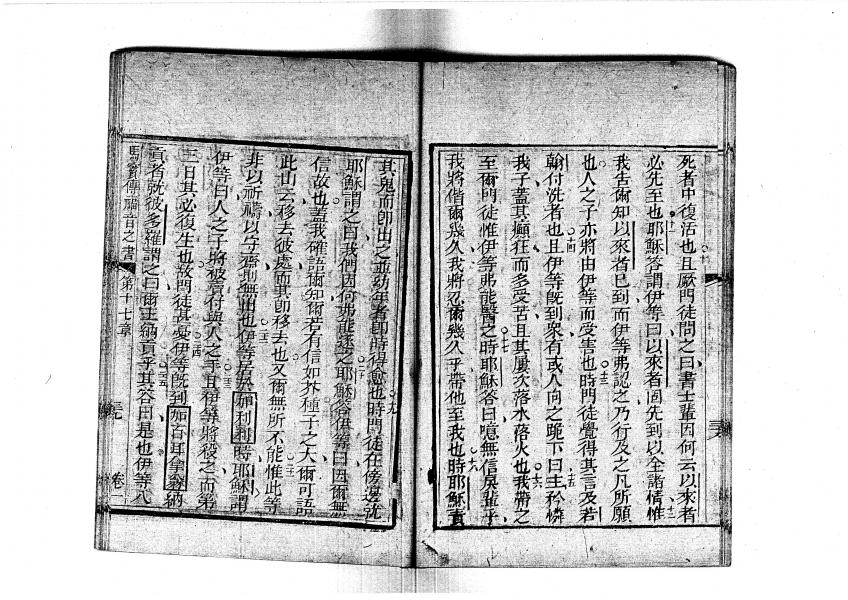 死者中復活也且厥門徒問之曰書士輩因何云以來者
必先至也耶穌答謂伊等曰以來者固先到以全諸情惟
我告爾知以來者已到而伊等弗認之乃行及之凡所願
也人之子亦將由伊等而受害也時門徒覺得其言及若
翰付洗者也且伊等既到眾有或人向之跪下曰主矜憐
我子蓋其癲狂而多受苦且其屢次落水落火也我帶之
至爾門徒惟伊等弗能醫之時耶穌答曰噫無信戾輩乎
我將偕爾幾久我將忍爾幾久乎帶他至我也時耶穌責
其鬼而即出之並幼年者即時得愈也時門徒在傍邊就
耶穌謂之曰我們因何弗能逐之耶穌答伊等曰因爾無
信故也蓋我確語爾知爾若有信如芥種子之大爾可語
此山云移去彼處而其即移去也又爾無所不能惟此等
非以祈禱以守齋則無出也伊等居於加利利時耶穌謂
伊等曰人之子將被賣付與人之手且伊等將殺之而第
三日其必復生也故門徒甚憂伊等既到加百耳拿翁納
貢者就彼多羅謂之曰爾主納貢乎其答曰是也伊等入
馬竇傳福音之書 第十七章 卷一